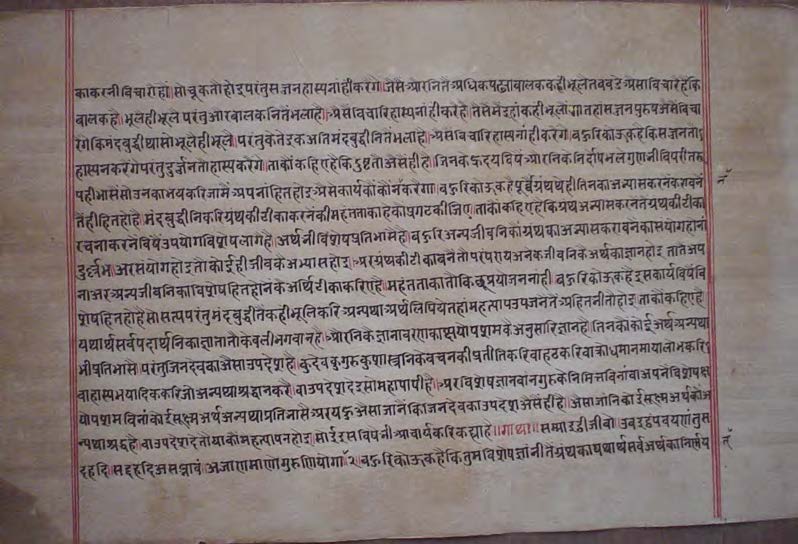 काकरनी विचारोहां सो चूकतो होइ परंतु सज्जन हास्य नांही करेंगे जैसें औरनितैं अधिक पढ्या बालक कहीं भूलै तब वडे असा विचारे हैं कि
बालक है भूलै ही भूलै परंतु और बालकनितैं भला है असा विचारि हास्य नांही करे है तैसें मैं इहां कहीं भूलों गा तहां सज्जन पुरुष असें विचा
रेंगे कि मंदबुद्धी था सो भूलै ही भूलै परंतु केतेइक अतिमंदबुद्धीनितैं भला है असा विचारि हास्य नांही करेंगे बहुरि कोऊ कहै कि सज्जन तो
हास्य न करेंगे परंतु दुर्जन तो हास्य करेंगे ताकौं कहिए है कि दुष्ट तो असें ही है जिनके हृदय विषैं औरनिके निर्दोष भले गुण भी विपरीतरू
पही भासैं सो उनका भय करि जामैं अपनां हित होइ असे कार्य कौं कौन न करेगा बहुरि कोऊ कहै पूर्वे ग्रंथ थे ही तिनका अभ्यास करनें करावनें
तैं ही हित हो है मंदबुद्धीनि करि ग्रंथ की टीका करनें की महंतता काहे कों प्रगट कीजिए ताकौं कहिए है कि ग्रंथ अभ्यास करनें तैं ग्रंथ की टीका
रचना करनें विषैं उपयोग विशेष लागै है अर्थ भी विशेष प्रतिभासै है बहुरि अन्य जीवनिकौं ग्रंथ का अभ्यास करावनें का संयोग होनां
दुर्लभ अर संयोग होइ तो कोई ही जीव कै अभ्यास होइ अर ग्रंथ की टीका बनै तो परंपराय अनेक जीवनिकै अर्थ का ज्ञान होइ तातैं अप
ना अर अन्य जीवनिका विशेष हित होनें के अर्थि टीका करिए है महंतता का तो किछू प्रयोजन नांही बहुरि कोऊ कहै इस कार्य विषैं वि
शेष हित हो है सो सत्य परंतु मंदबुद्धीतैं कहीं भूलि करि अन्यथा अर्थ लिखिये तहां महत्पाप उपजनें तैं अहित भी तो होइ ताकौं कहिए है
यथार्थ सर्व पदार्थनिका ज्ञाता तो केवली भगवान है औरनिकै ज्ञानावरण का क्षयोपशम के अनुसारि ज्ञान है तिनकों कोई अर्थ अन्यथा
भी प्रतिभासै परंतु जिनदेव का असा उपदेश है कुदेव कुगुरु कुशास्त्रनिके वचन की प्रतीति करि वा हठ करि वा क्रोध मान माया लोभ करि
वा हास्य भयादिक करि जो अन्यथा श्रद्धान करै वा उपदेश दे सो महापापी है अर विशेष ज्ञानवान गुरु के निमित्त विनां वा अपने विशेष क्ष
योपशम विनां कोई सूक्ष्म अर्थ अन्यथा प्रतिभासै अर यहु असा जानैं का जिनदेव का उपदेश असें ही है असा जानि कोई सूक्ष्म अर्थ कौं अ
न्यथा श्रद्दहै वा उपदेश दे तो याको महत्पाप न होइ सोई इस विषैं भी आचार्य करि कह्या है गाथा सम्माइट्ठी जीवो उवइट्ठं पवयणं तु स
द्दहदि सद्दहदि असब्भावं अजाणमाणो गुरुणियोगा १ बहुरि कोऊ कहै कि तुम विशेष ज्ञानी तैं ग्रंथ का यथार्थ सर्व अर्थ का निर्णय